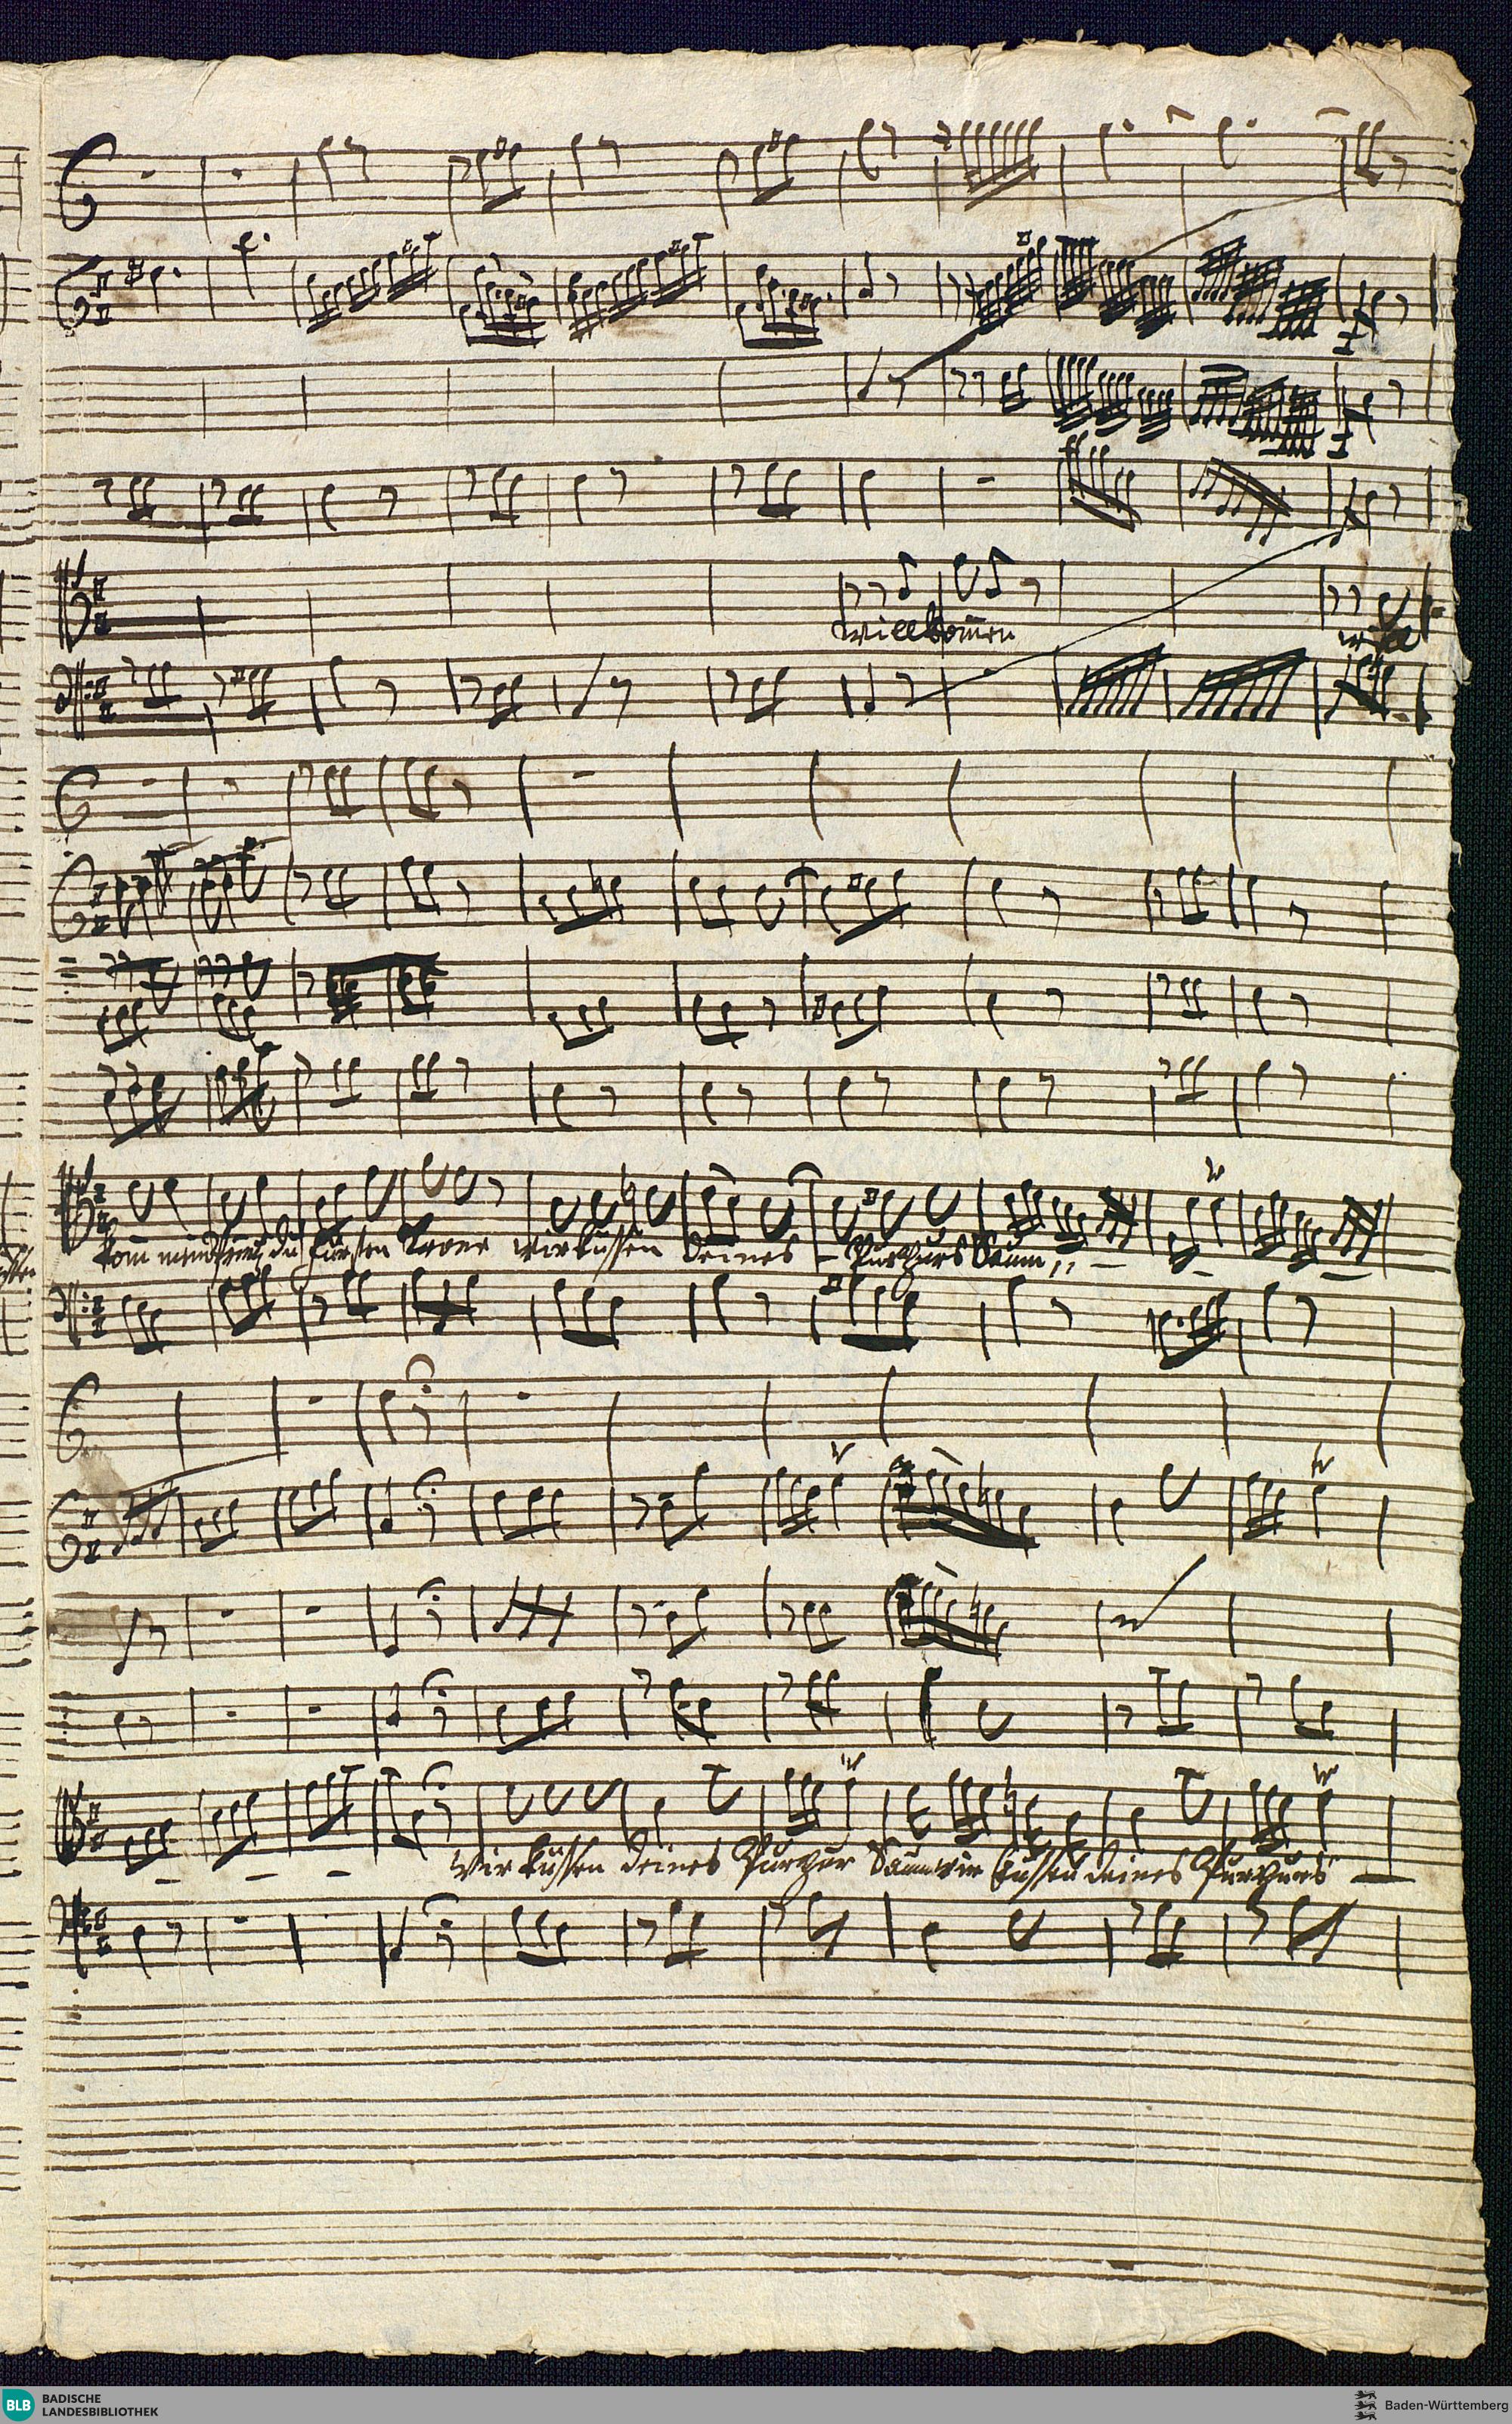 Willkom̄en
will
kom̄ und du Fürsten Krone wir küssen deines Purpurs Saum
wir küssen deines Purpur Saum wir küssen deines Purpurs
BLB BADISCHE LANDESBIBLIOTHEK
Baden-Württemberg